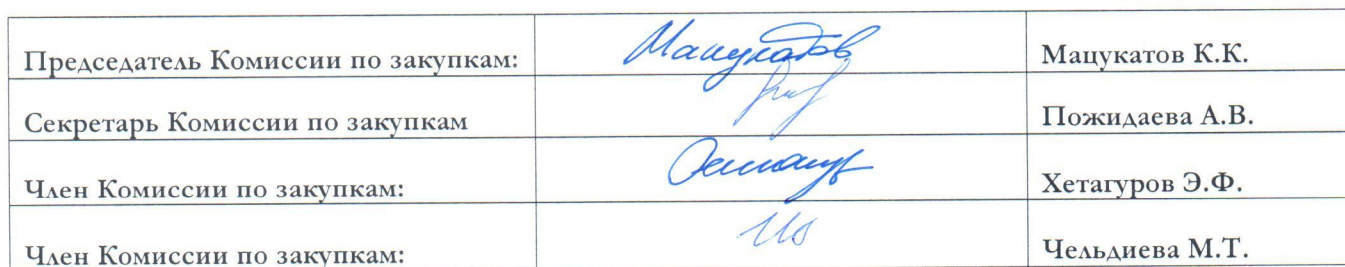 Председатель Комиссии по закупкам: Мацукатов К.К.
Секретарь Комиссии по закупкам Пожидаева А.В.
Член Комиссии по закупкам: Хетагуров Э.Ф.
Член Комиссии по закупкам: Чельдиева М.Т.